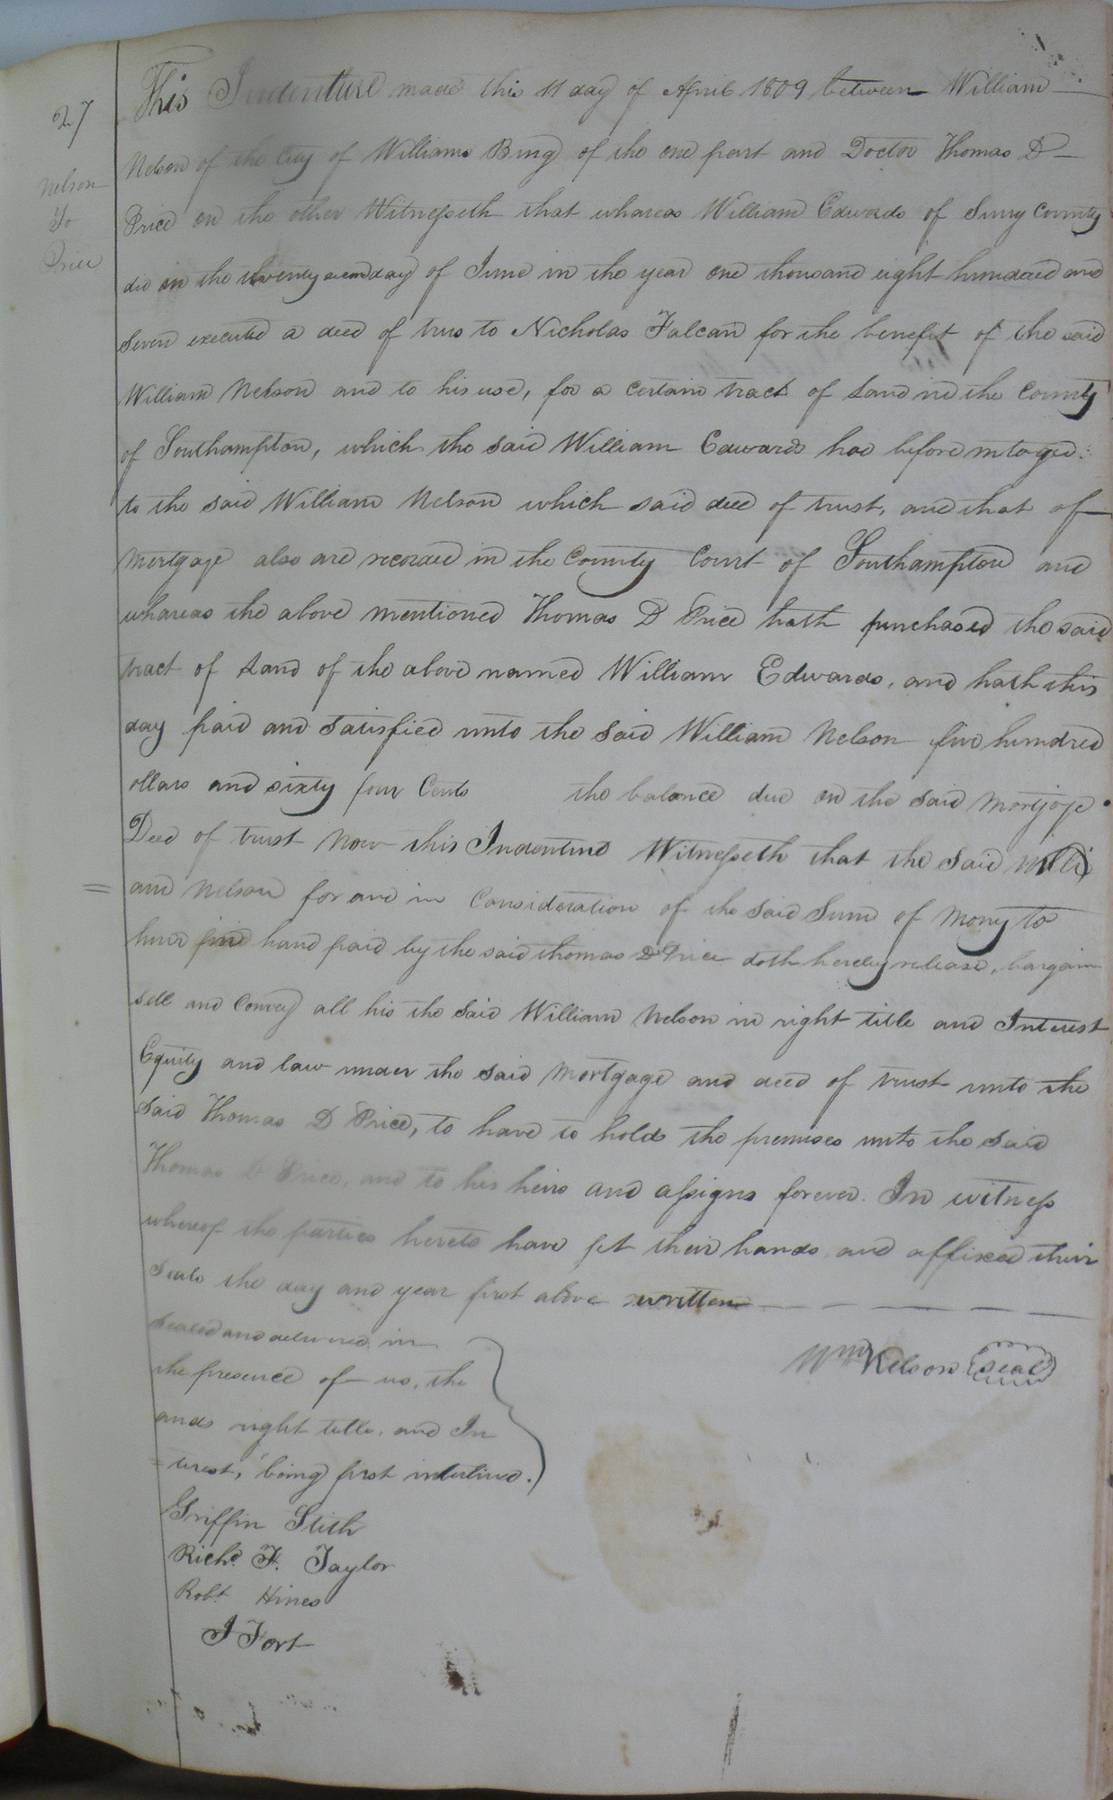 27
Nelson
To
Price
This Indenture made this 11 day of April 1809 between William
Nelson of the City of Williams Burg of the one part and Doctor Thomas D
Price on the other Witnesseth that whereas William Edwards of Surry County
did on the twenty second day of June in the year one thousand eight hundred and
Seven executed a deed of trus to Nicholas Falcan for the benefit of the said
William Nelson and to his use, for a certain tract of Land in the County
of Southampton, which the said William Edwards had before mtoged
to the said William Nelson which said deed of trust, and that of
mortgage also are recorded in the County Court of Southampton and
whereas the above mentioned Thomas D Price hath purchased the said
tract of Land of the above named William Edwards, and hath this
day paid and satisfied unto the said William Nelson five hundred
ollars and sixty four Cents the balance due on the said mortgage
Deed of trust Now this Indenture Witnesseth that the said Willi
= am Nelson for and in Consideration of the said Sum of Mony to
him hand paid by the said thomas D Price doth hereby release, bargain
sell and Convey all his the said William Nelson in right title and Interest
Equity and law under the said Mortgage and deed of trust unto the
said Thomas D Price, to have to hold the premises unto the said
Thomas D Price, and to his heirs and assigns forever. In witness
whereof the parties hereto have set their hands and affixed their
seals the day and year first above written
Sealed and delivered in
the presence of us, the
ands right title, and In
= terest, being first interlined.
Wm Nelson Seal
Griffin Stith
Richd. F. Taylor
Robt Hines
J Fort